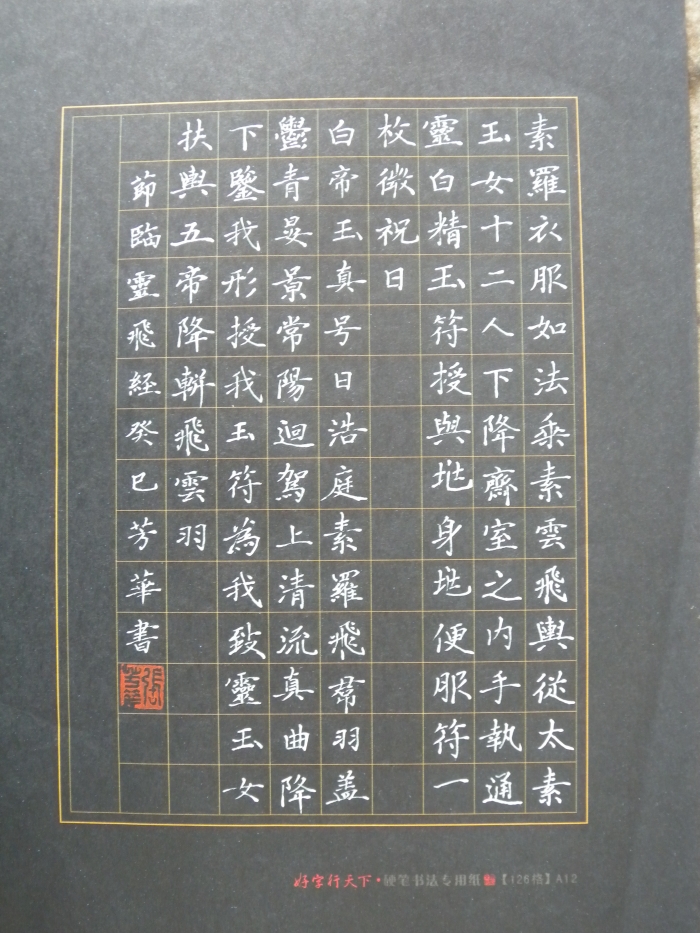 素羅衣服如法乘素雲飛輿從太素
玉女十二人下降齋室之内手執通
靈白精玉符授與垗身垗便服符一
枚微祝曰
白帝玉真号曰浩庭素羅飛帬羽盖
鬱青晏景常陽迴駕上清流真曲降
下鑒我形授我玉符為我致靈玉女
扶輿五帝降軿飛雲羽
節臨靈飛經癸巳芳華書
好字行天下·硬笔书法专用纸【126格】A12